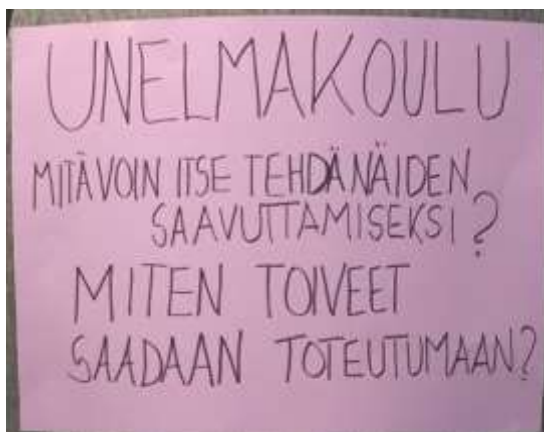 UNELMAKOULU
MITÄ VOIN ITSE TEHDÄ NÄIDEN
SAAVUTTAMISEKSI?
MITEN TOIVEET
SAADAAN TOTEUTUMAAN?